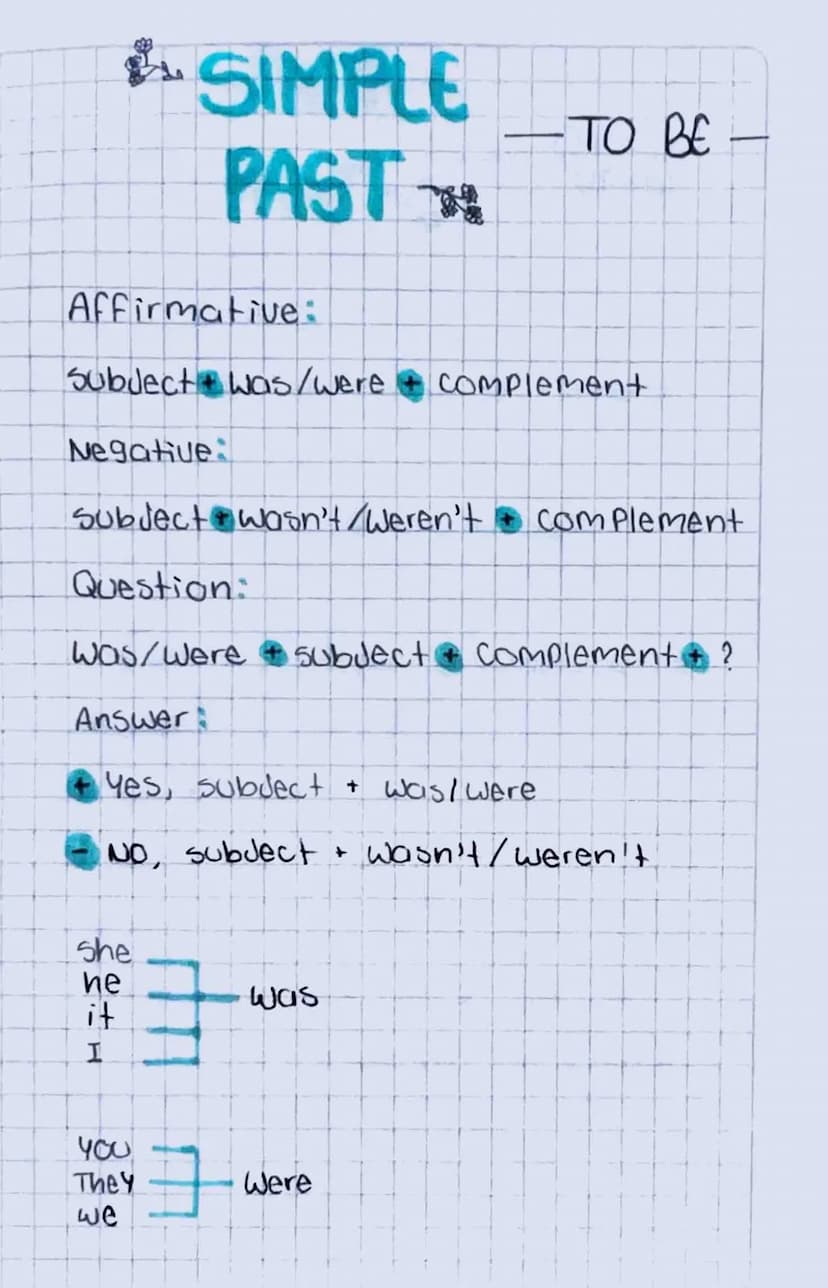 SIMPLE
PAST
— TO BE —
Affirmative:
subject + was/were + complement
Negative:
subject + wasn't/weren't + complement
Question:
was/were + subject + complement + ?
Answer:
+ Yes, subject + was/were
- No, subject + wasn't/weren't
she
he
it
I
was
you
They
we
were